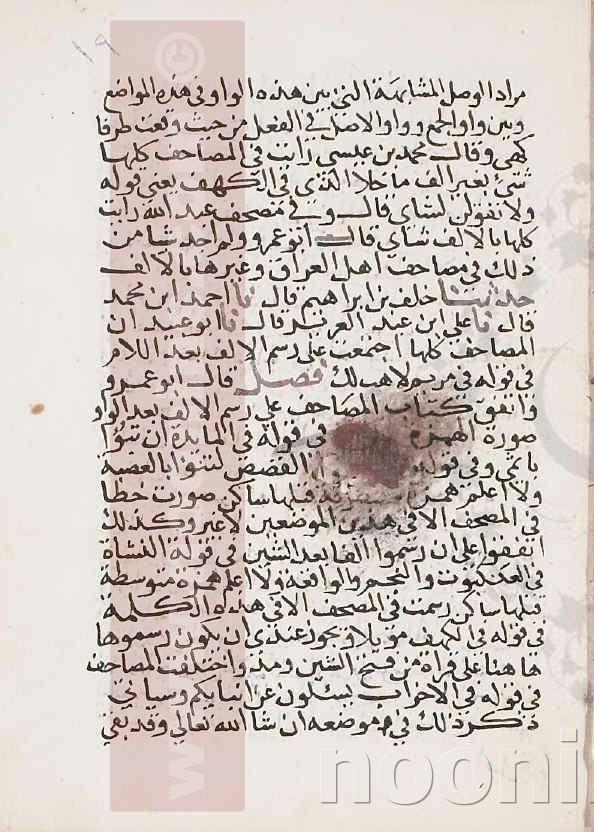 ١٩
مراد الوصل المشابهة التي بين هذه الواو في هذه المواضع
وبين واو الجمع وواو الاصل في الفعل من حيث وقعت طرفا
كهي وقال محمد بن عيسى رايت في المصاحف كلها
شئ بغير الف ما خلا الذي في الكهف يعني قوله
ولا تقولن لشاي قال وفي مصحف عبد الله رايت
كلها بالالف شاي قال ابو عمرو ولم اجد شيا من
ذلك في مصاحف اهل العراق وغيرها بالالف
حدثنا خلف بن ابراهيم قال نا احمد ابن محمد
قال نا علي ابن عبد العزيز قال نا ابو عبيد ان
المصاحف كلها اجمعت على رسم الالف بعد اللام
في قوله في مريم لاهب لك فصل قال ابو عمرو
واتفق كتاب المصاحف على رسم الالف بعد الواو
صورة الهمزة في قوله في المايدة ان تبوا
باثمي وفي قوله القصص لتنوا بالعصبة
ولا اعلم همزة قبلها ساكن صورت خطا
في المصحف الا في هذين الموضعين لا غير وكذلك
اتفقوا على ان رسموا الفا بعد الشين في قوله النشاة
في العنكبوت والنجم والواقعة ولا اعلم همزة متوسطة
قبلها ساكن رسمت في المصحف الا في هذه الكلمة
في قوله في الكهف مويلا ويجوز عندي ان يكون رسموها
هاهنا على قراة من فتح الشين ومد واختلفت المصاحف
في قوله في الاحزاب يسئلون عن انبايكم وسياتي
ذكر ذلك في موضعه ان شا الله تعالى وقد بقي
nooni